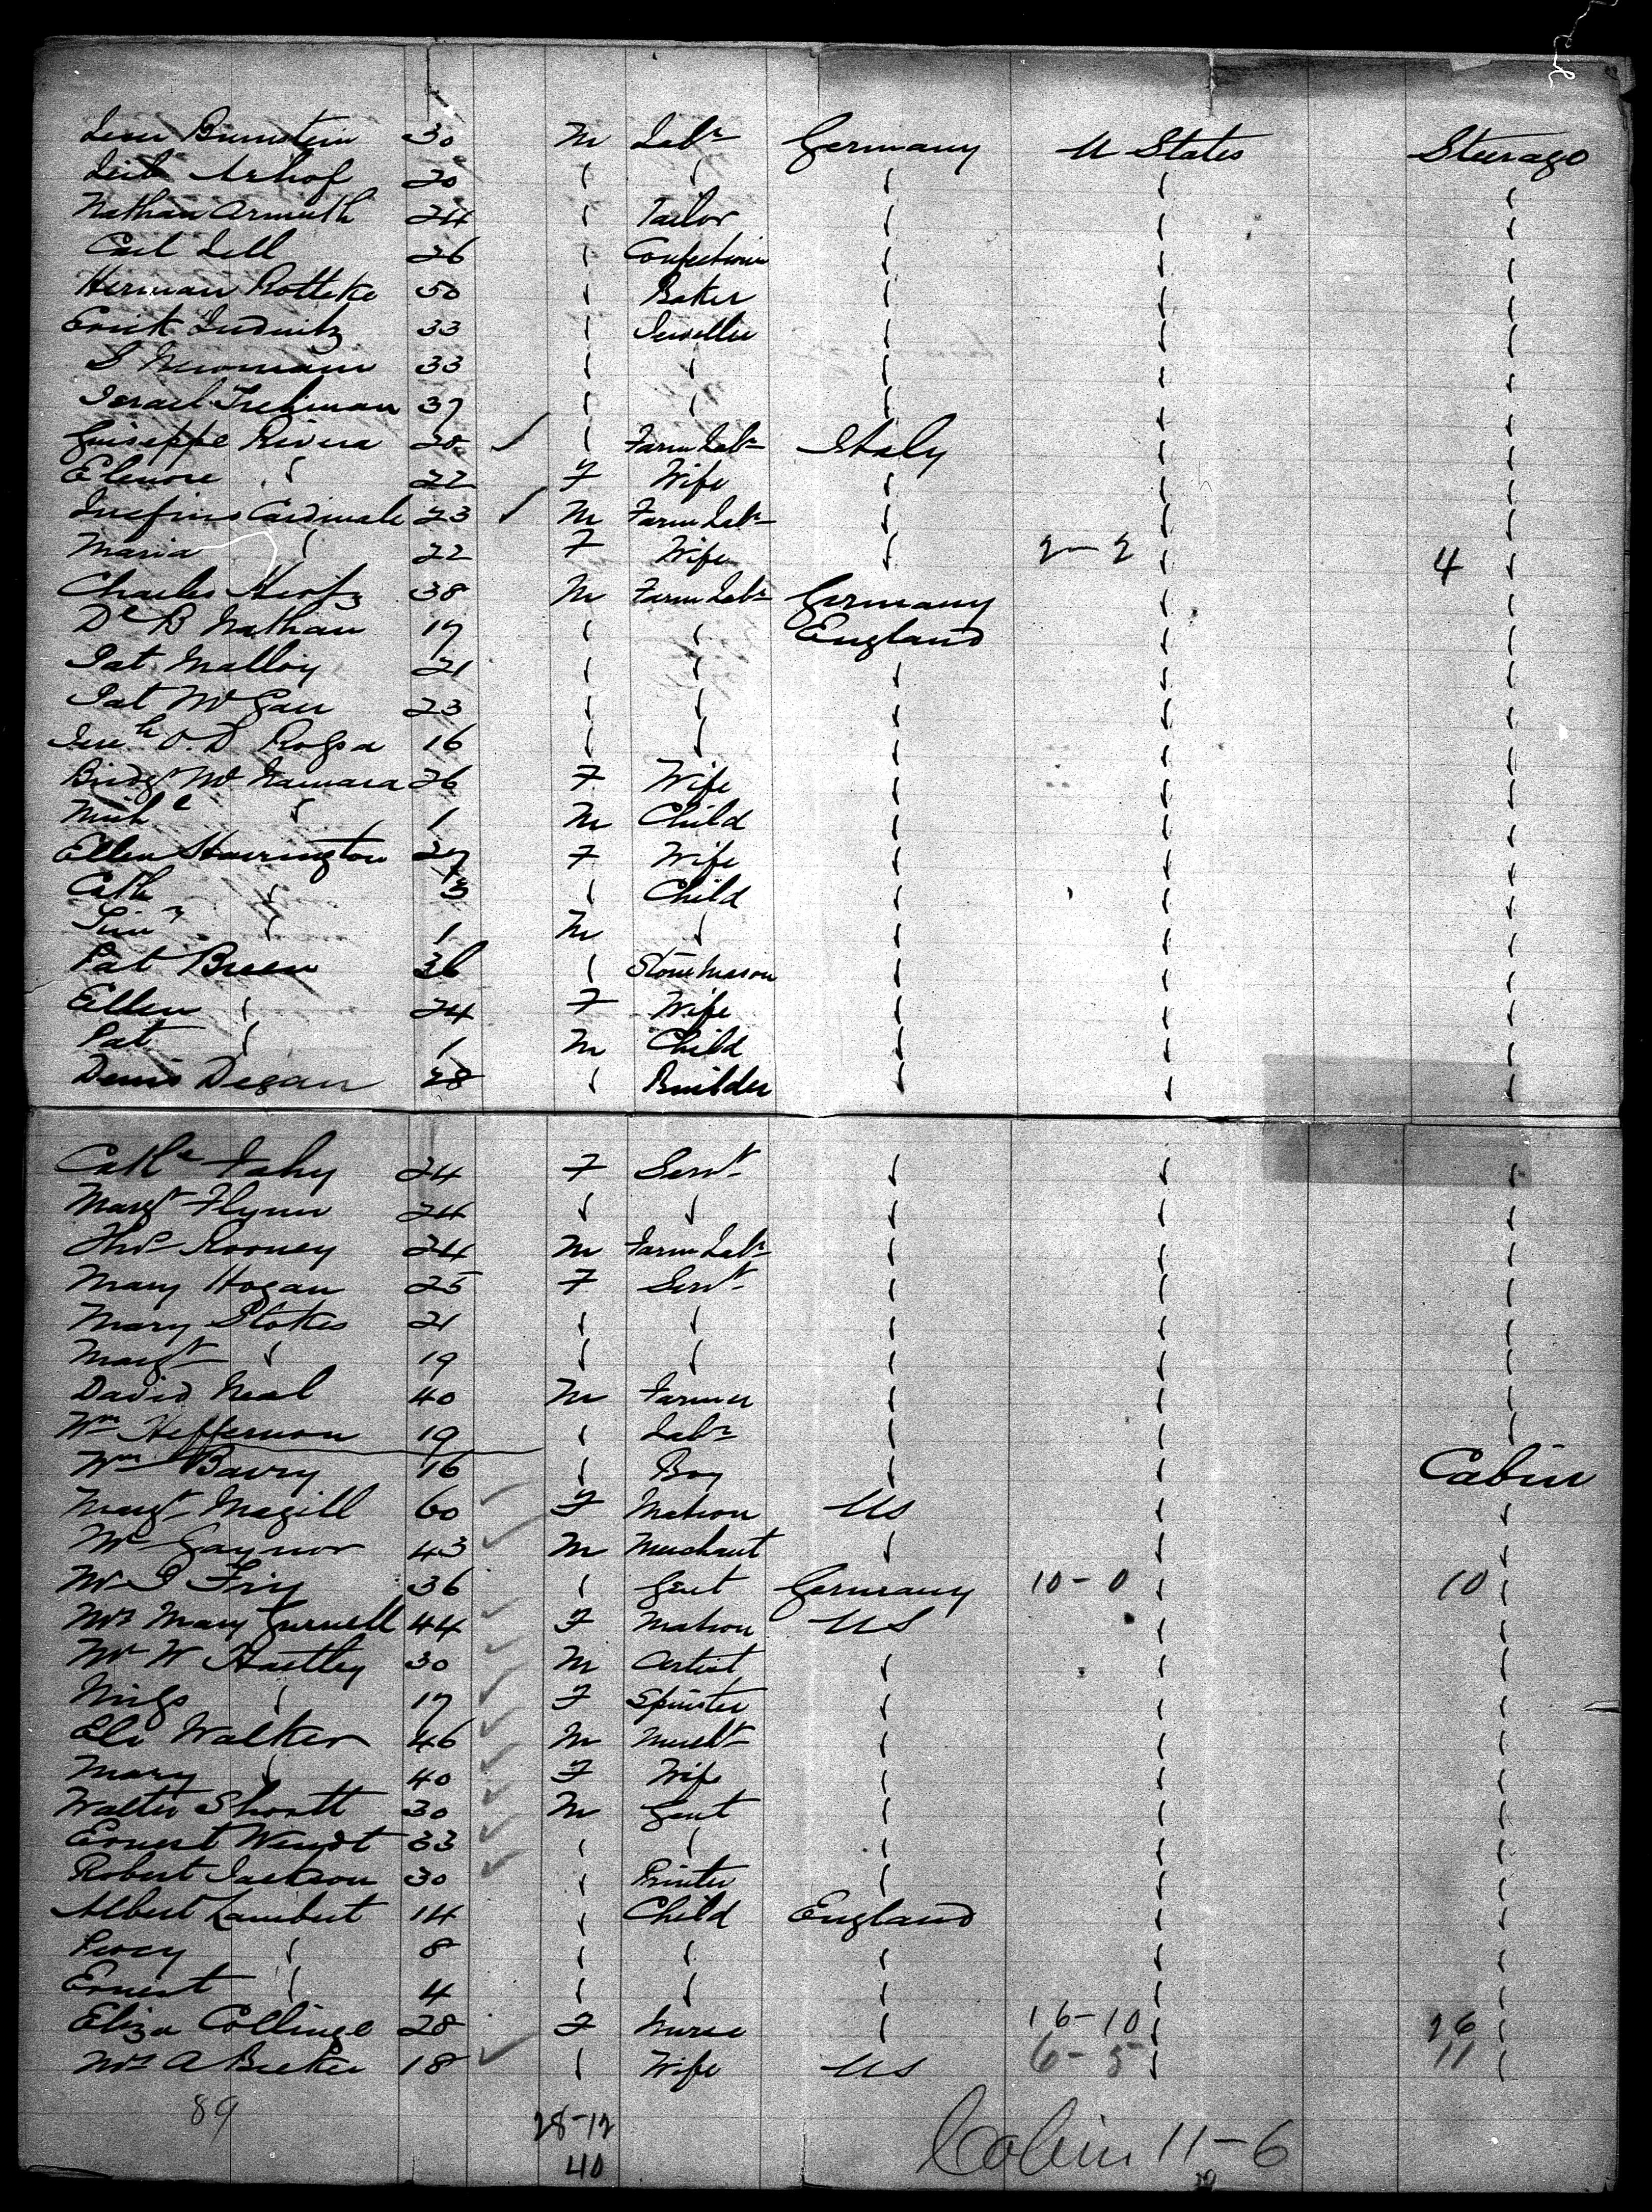 30 M Labr Germany U States Steerage
20 " " " " "
Nathan Armuth 24 " Tailor " " "
Carl Lell 26 " " " "
Herman Rotteke 50 " Baker " " "
Ludwitz 33 " Jeweller " " "
S Newmann 33 " " " " "
Israel 37 " " " " "
Guiseppe Rivera 28 ✓ " Farm Labr Italy " "
Elenore " 22 F Wife " " "
Cardinale 23 ✓ M Farm Labr " " "
Maria " 22 F Wife " 2-2 " 4 "
Charles Hertz 38 M Farm Labr Germany " "
B Nathan 17 " " England " "
Pat Malloy 21 " " " " "
Pat McGau 23 " " " " "
O.D. 16 " " " " "
Bridgt McNamara 26 F Wife " " "
Michl " 1 M Child " " "
Ellen Harrington 27 F Wife " " "
Cath " 3 " Child " " "
" 1 M " " " "
Pat Breen 36 " Stone Mason " " "
Ellen " 24 F Wife " " "
Pat " 1 M Child " " "
Denis Degan 28 " Builder " " "
Cathe Fahy 24 F Servt " " "
Margt Flynn 24 " " " " "
Thos Rooney 24 M Farm Labr " " "
Mary Hogan 25 F Servt " " "
Mary Stokes 21 " " " " "
Margt " 19 " " " " "
David Neal 40 M Farmer " " "
Wm Heffernon 19 " Labr " " "
Wm Barry 16 " Boy " " Cabin
Margt Magill 60 ✓ F Matron US " "
Mr Gaynor 43 ✓ M Merchant " " "
Mr 36 " Gent Germany 10-0 " 10 "
Mrs Mary 44 ✓ F Matron US " "
Mr W Hartley 30 ✓ M Artist " " "
Miss " 17 ✓ F Spinster " " "
Eli Walker 46 ✓ M Mercht " " "
Mary " 40 ✓ F Wife " " "
Walter Shortt 30 ✓ M Gent " " "
Ernest Wendt 33 ✓ " " " " "
Robert Jackson 30 ✓ " Printer " " "
Albert Lambert 14 " Child England " "
Percy " 8 " " " " "
Ernest " 4 " " " " "
Eliza Collinge 28 F Nurse " 16-10 " 26 "
Mrs A 18 ✓ " Wife US 6-5 " 11 "
89
28-12
40
Cabin 11-6